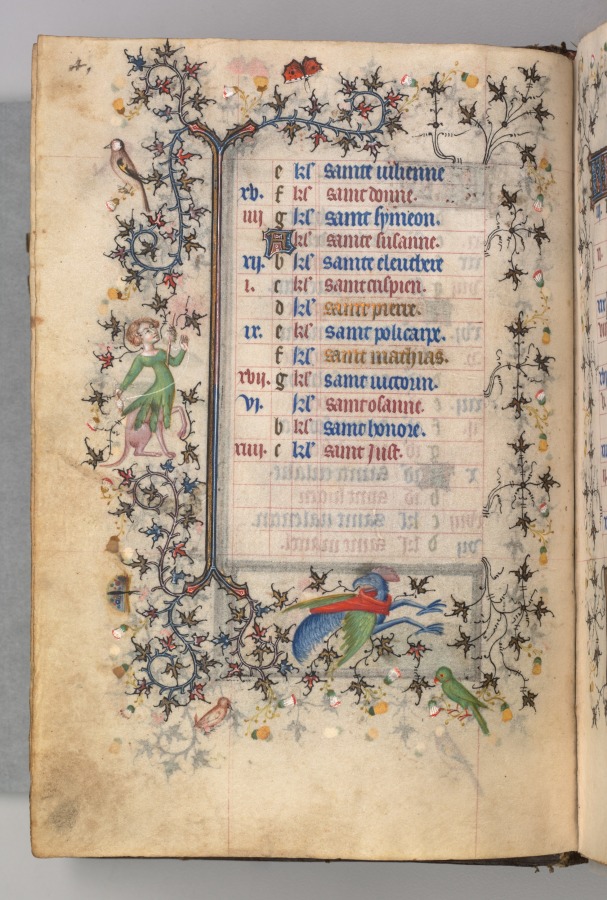 e kl' sainte iulienne
xv. f kl' saint donne.
iiii g kl' saint symeon.
A kl' sainte susanne.
xij. b kl' sainte eleuthere
i. c kl' saint cuspien.
d kl' saint pierre.
ix. e kl' saint policarpe.
f kl' saint mathias.
xvij. g kl' saint uictorin.
vj. kl' saint osanne.
b kl' saint honore.
xiiii. c kl' saint just.